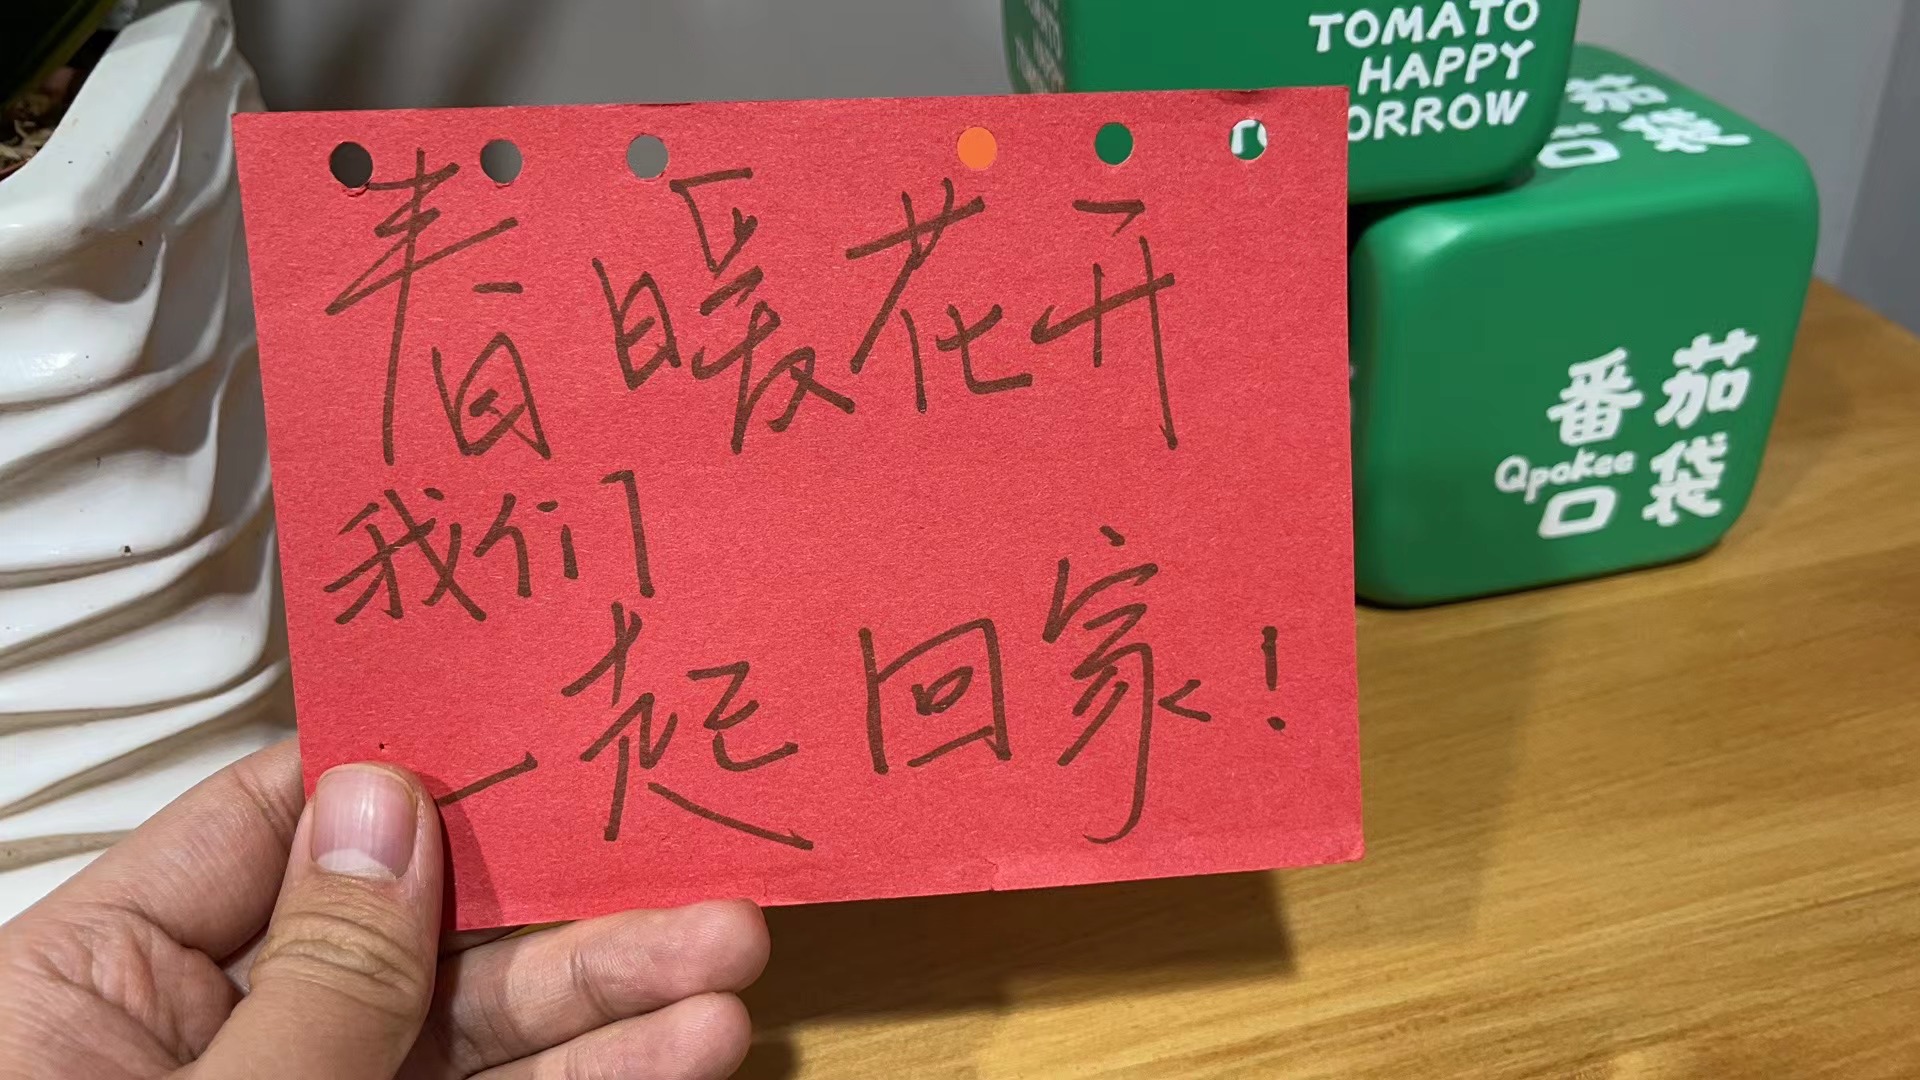 春暖花开
我们
一起回家！
TOMATO
HAPPY
ORROW
番茄
口袋
番茄
Qpokee
口袋